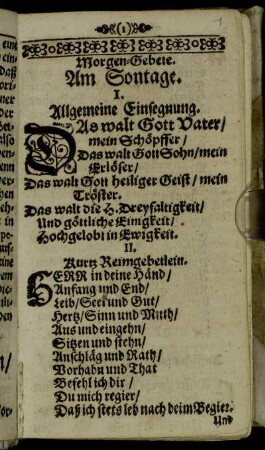 (1)
1
Morgen-Gebete.
Am Sontage.
I.
Allgemeine Einsegnung.
DAs walt Gott Vater/
mein Schöpffer/
Das walt Gott Sohn/mein
Erlöser/
Das walt Gott heiliger Geist/ mein
Tröster.
Das walt die H. Dreyfaltigkeit/
Und göttliche Einigkeit/
Hochgelobt in Ewigkeit.
II.
Kurtz Reimgebetlein.
HERR in deine Händ/
Anfang und End/
Leib/ Seel und Gut/
Hertz/ Sinn und Muth/
Aus und eingehn/
Sitzen und stehn/
Anschläg und Rath/
Vorhabn und That
Befehl ich dir/
Du mich regier/
Daß ich stets leb nach deim Begier.
Und